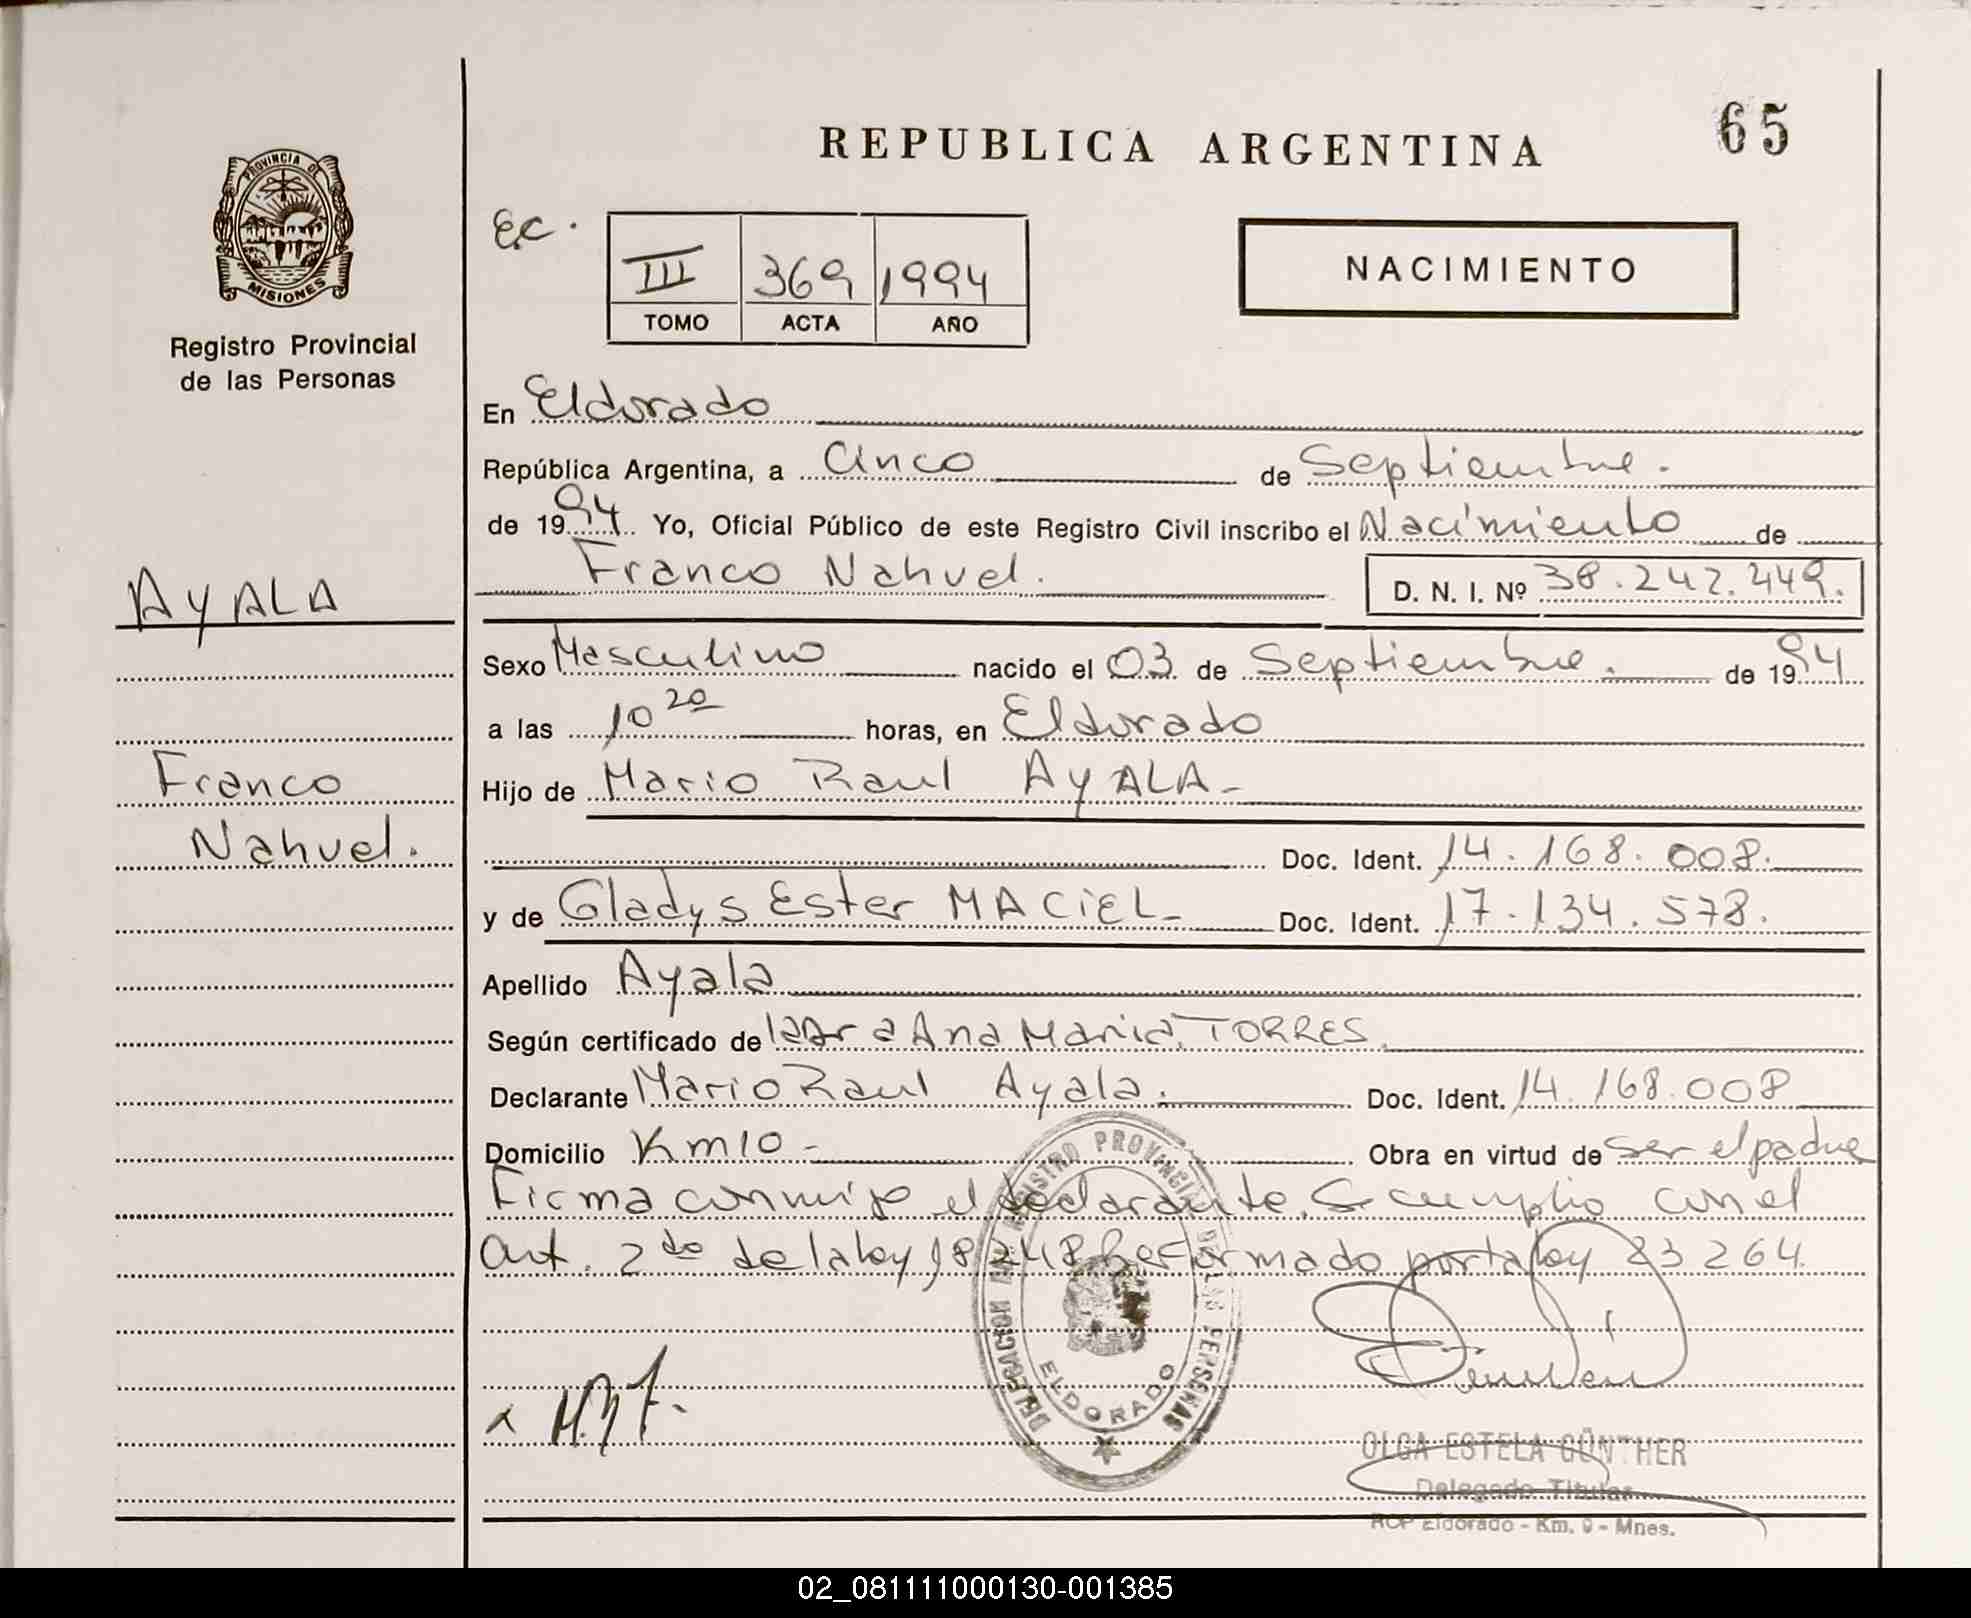 REPUBLICA ARGENTINA
65
PROVINCIA DE MISIONES
Registro Provincial
de las Personas
E.C.
III 369 1994
TOMO ACTA AÑO
NACIMIENTO
En Eldorado
República Argentina, a Cinco de Septiembre.
de 1994. Yo, Oficial Público de este Registro Civil inscribo el Nacimiento de
Franco Nahuel. D. N. I. Nº 38.242.449.
AYALA
Sexo Masculino nacido el 03 de Septiembre. de 1994
a las 10 20 horas, en Eldorado
Franco
Hijo de Mario Raul AYALA-
Nahuel.
Doc. Ident. 14.168.008.
y de Gladys Ester MACIEL- Doc. Ident. 17.134.578.
Apellido Ayala
Según certificado de la Dra Ana Maria TORRES.
Declarante Mario Raul Ayala. Doc. Ident. 14.168.008
Domicilio Km 10- Obra en virtud de ser el padre
Firma conmigo el declarante. Se cumplio con el
Art. 2do de la ley 18248 Reformado por la ley 23264.
DELEGACION DEL REGISTRO PROVINCIAL DE LAS PERSONAS
ELDORADO
x
OLGA ESTELA GÜNTHER
Delegado Titular
RCP Eldorado - Km. 9 - Mnes.
02_081111000130-001385